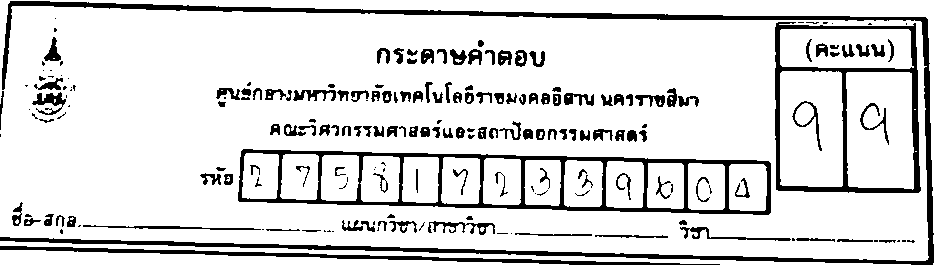 กระดาษคำตอบ
(คะแนน)
ศูนย์กลางมหาวิทยาลัยเทคโนโลยีราชมงคลอีสาน นครราชสีมา
9 9
คณะวิศวกรรมศาสตร์และสถาปัตยกรรมศาสตร์
รหัส 2 7 5 8 1 7 2 3 3 9 6 0 4
ชื่อ-สกุล แผนกวิชา/สาขาวิชา วิชา